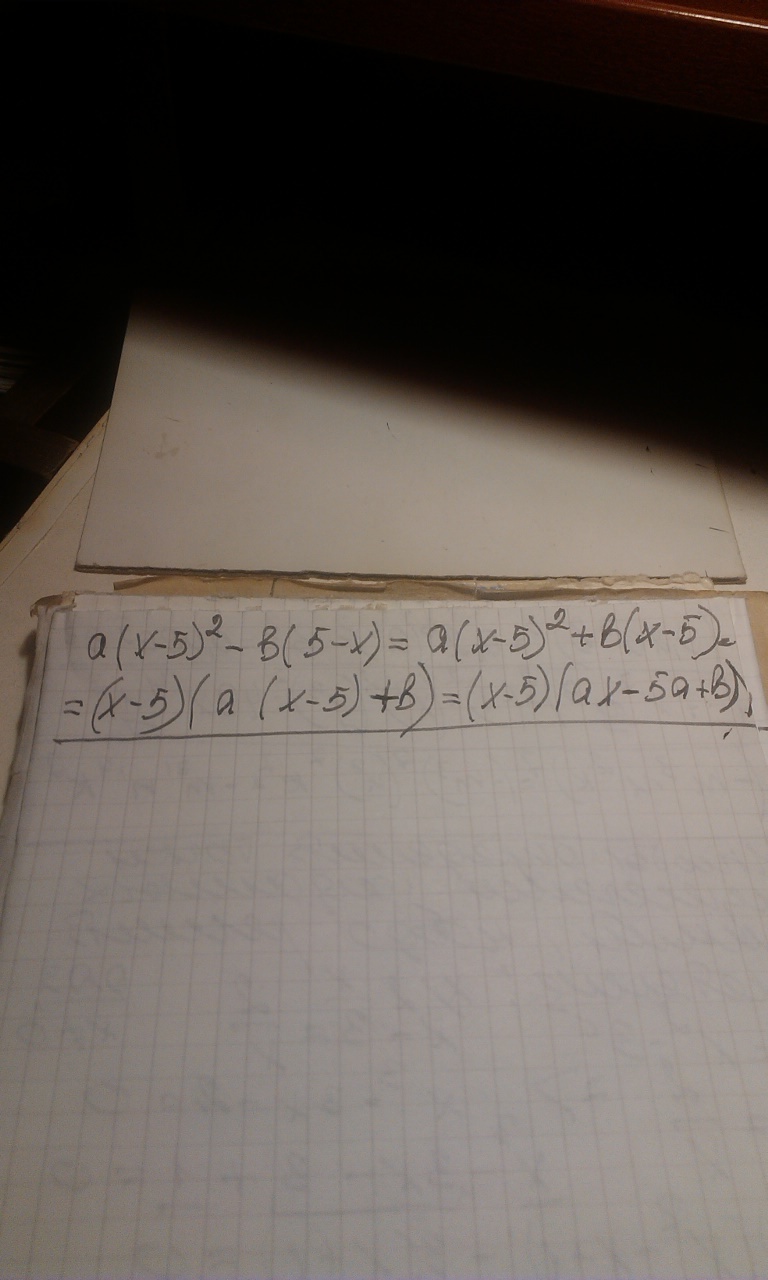 a(x-5)²- b(5-x)= a(x-5)²+b(x-5)=
=(x-5)(a (x-5)+b)=(x-5)(ax-5a+b);